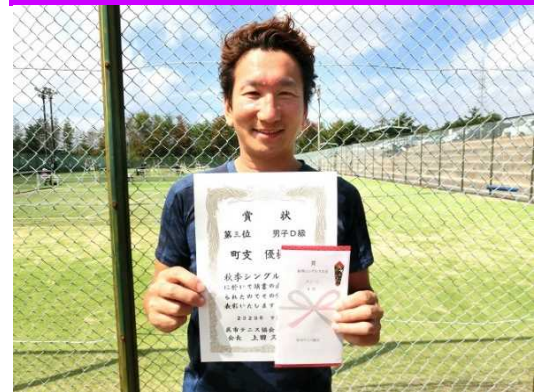 賞 状
第三位 男子D級
町支 優
秋季シングル
に於いて頭書の
られたのでその
表彰いたします
2020年
呉市テニス協会
会長 上田
賞